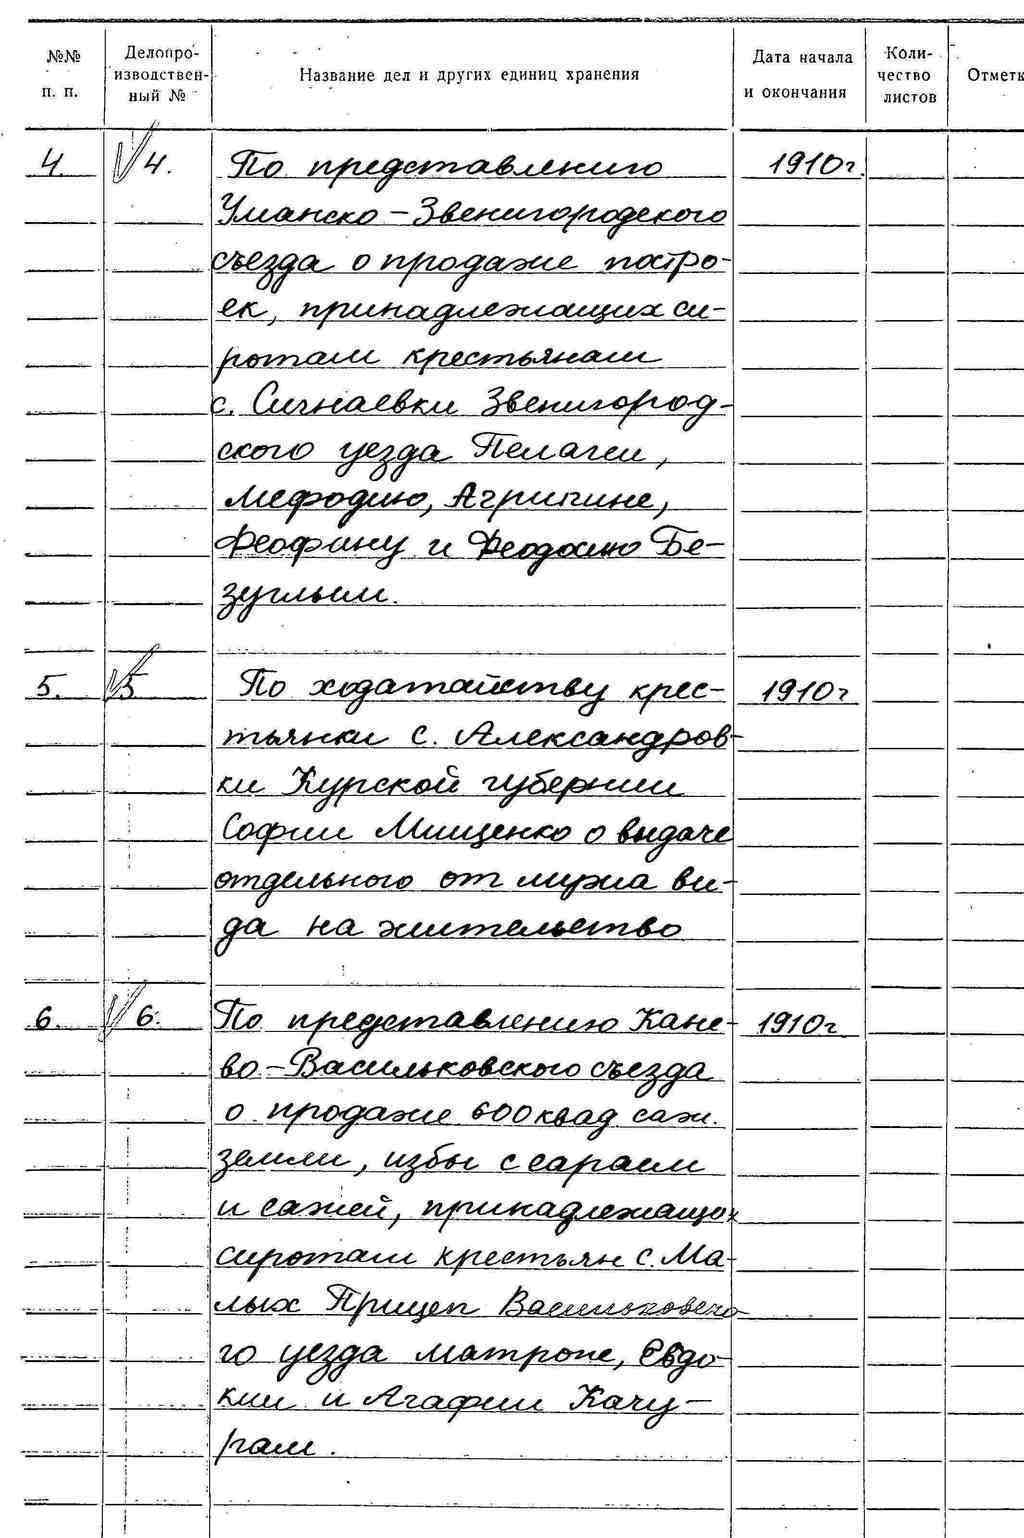 №№ п. п. Делопроизводствен-ный № Название дел и других единиц хранения Дата начала и окончания Коли-чество листов Отметк
4. 4. По представлению 1910г.
Уманско-Звенигородского
съезда о продаже постро-
ек, принадлежащих си-
ротам крестьянам
с. Сичнаевки Звенигород-
ского уезда Пелагеи,
Мефодию, Агрипине,
Феофину и Феодосию Бе-
зуглым.
5. 5 По ходатайству крес- 1910г
тьянки с. Александров-
ки Курской губернии
Софии Мищенко о выдаче
отдельного от мужа ви-
да на жительство
6. 6. По представлению Кане- 1910г.
во-Васильковского съезда
о продаже 600 квад. саж.
земли, избы с сараем
и сажей, принадлежащих
сиротам крестьян с. Ма-
лых Прицеп Васильковско-
го уезда Матроне, Евдо-
кии и Агафии Качу-
рам.